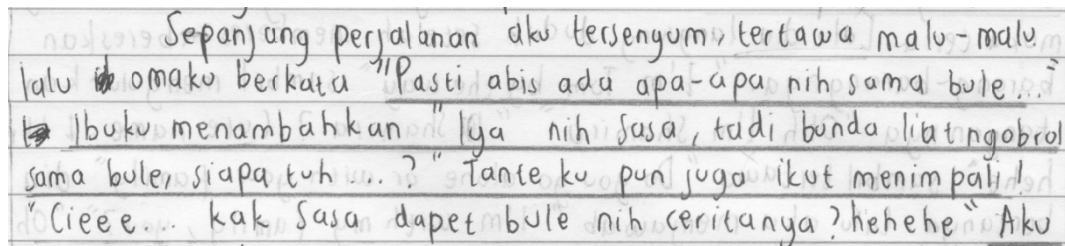 Sepanjang perjalanan aku tersenyum, tertawa malu-malu
lalu omaku berkata "Pasti abis ada apa-apa nih sama bule..."
Ibuku menambahkan "Iya nih Sasa, tadi bunda liat ngobrol
sama bule, siapa tuh...?" Tante ku pun juga ikut menimpali!
"Cieee... kak Sasa dapet bule nih ceritanya? hehehe" Aku